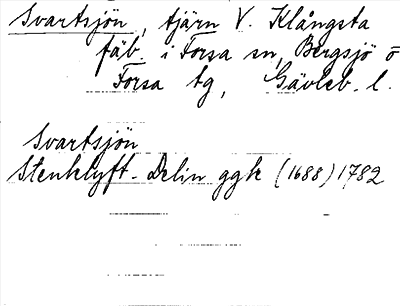 Svartsjön, tjärn V. Klångsta
fäb. i Forsa sn, Bergsjö o
Forsa tg, Gävleb. l.
Svartsjön
Stenklyft- Delin ggk (1688) 1782